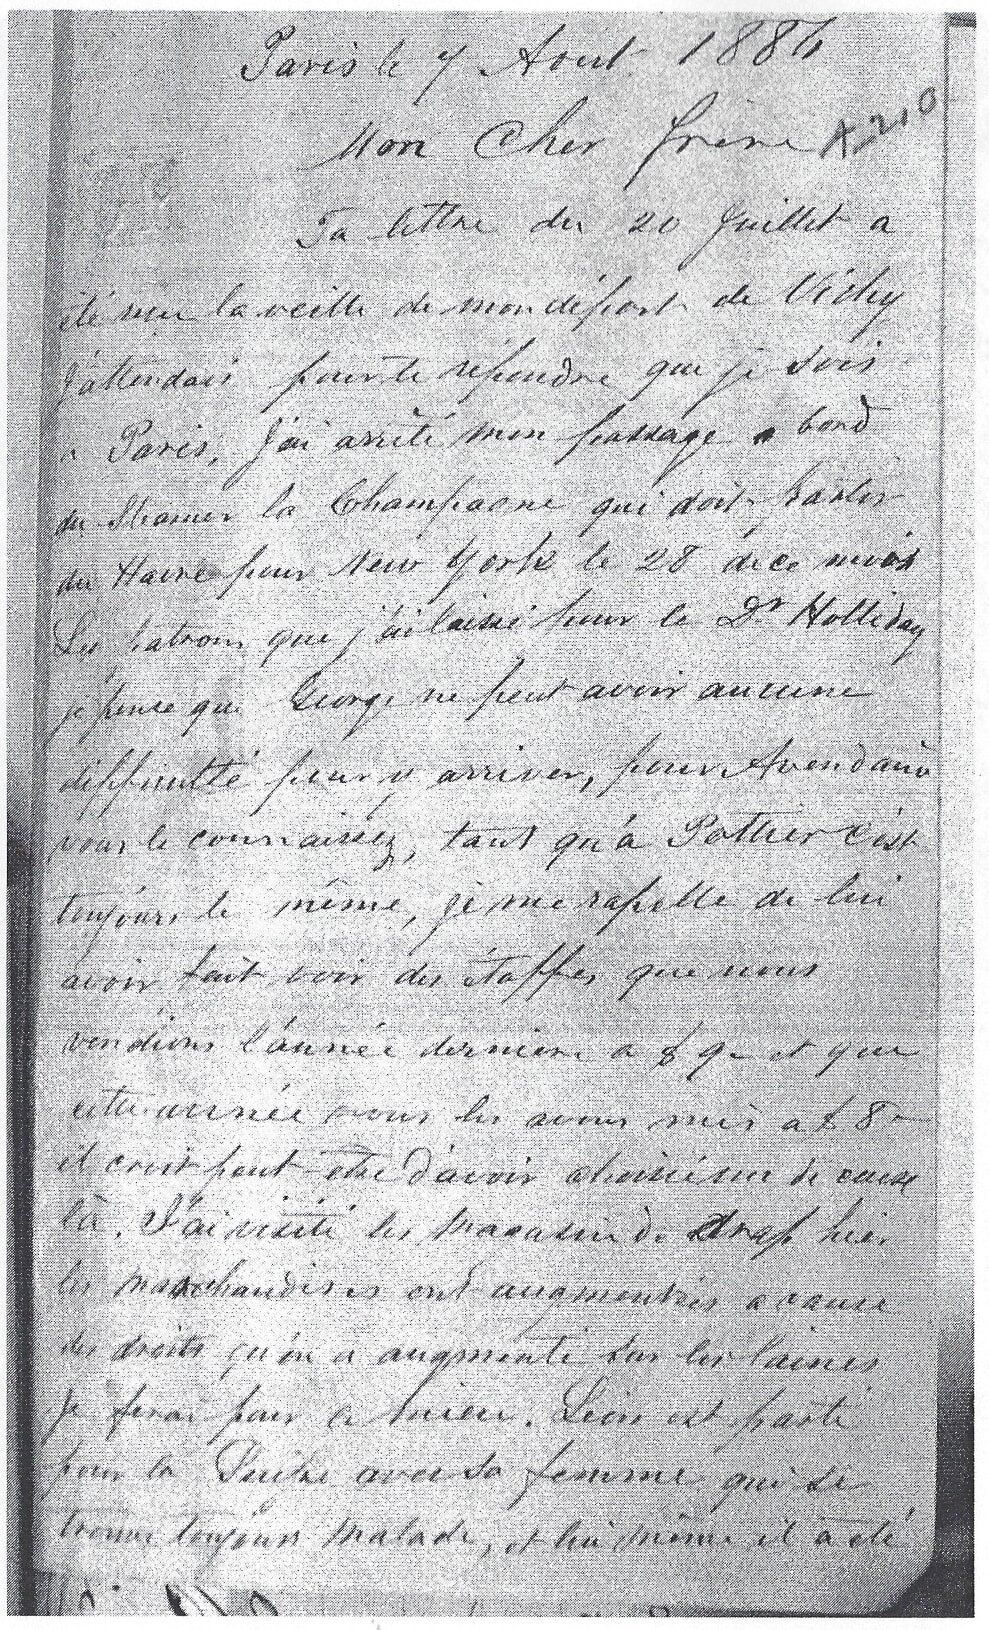 Paris le 7 Aout 1886
A210
Mon Cher frère
Ta lettre du 20 Juillet a
été reçu la veille de mon départ de Vichy
J'attendais pour te répondre que je sois
a Paris, J'ai arrêté mon passage a bord
du Steamer la Champagne qui doit partir
du Havre pour New York le 28 de ce mois
Les patrons que j'ai laissé pour le Dr Holliday
je pense que George ne peut avoir aucune
difficulté pour y arriver, pour Avendaño
vous le connaissez, tant qu'à Pottier c'est
toujours le même, je me rapelle de lui
avoir fait voir des étoffes que nous
vendions l'année derniere a $ 9 - et que
cette année nous les avons mis a $ 8 -
il croit peut-etre d'avoir choisi de ceux
là. J'ai visité les Magasin de drap hier
les marchandises ont augmentées a cause
des droits qu'on a augmenté sur les laines
Je ferai pour le mieu. Léon est parti
pour la Suisse avec sa femme qui se
trouve toujours malade, et lui même il a été